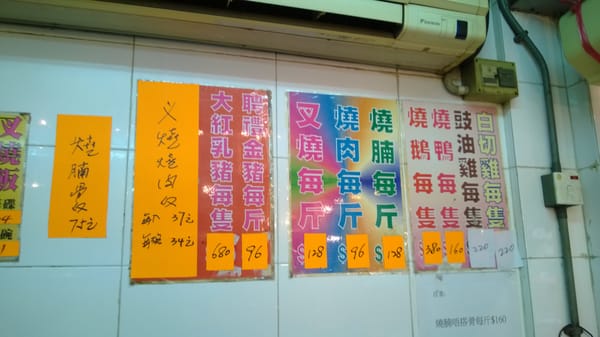 DAIKIN
叉燒飯
燒腩骨
75元
叉燒燒肉
37元
34元
大紅乳豬每隻
$680
聘禮金豬每斤
$96
叉燒每斤
$128
燒肉每斤
$96
燒腩每斤
$128
燒鵝每隻
$380
燒鴨每隻
$160
豉油雞每隻
220
白切雞每隻
220
燒腩唔搭骨每斤$160